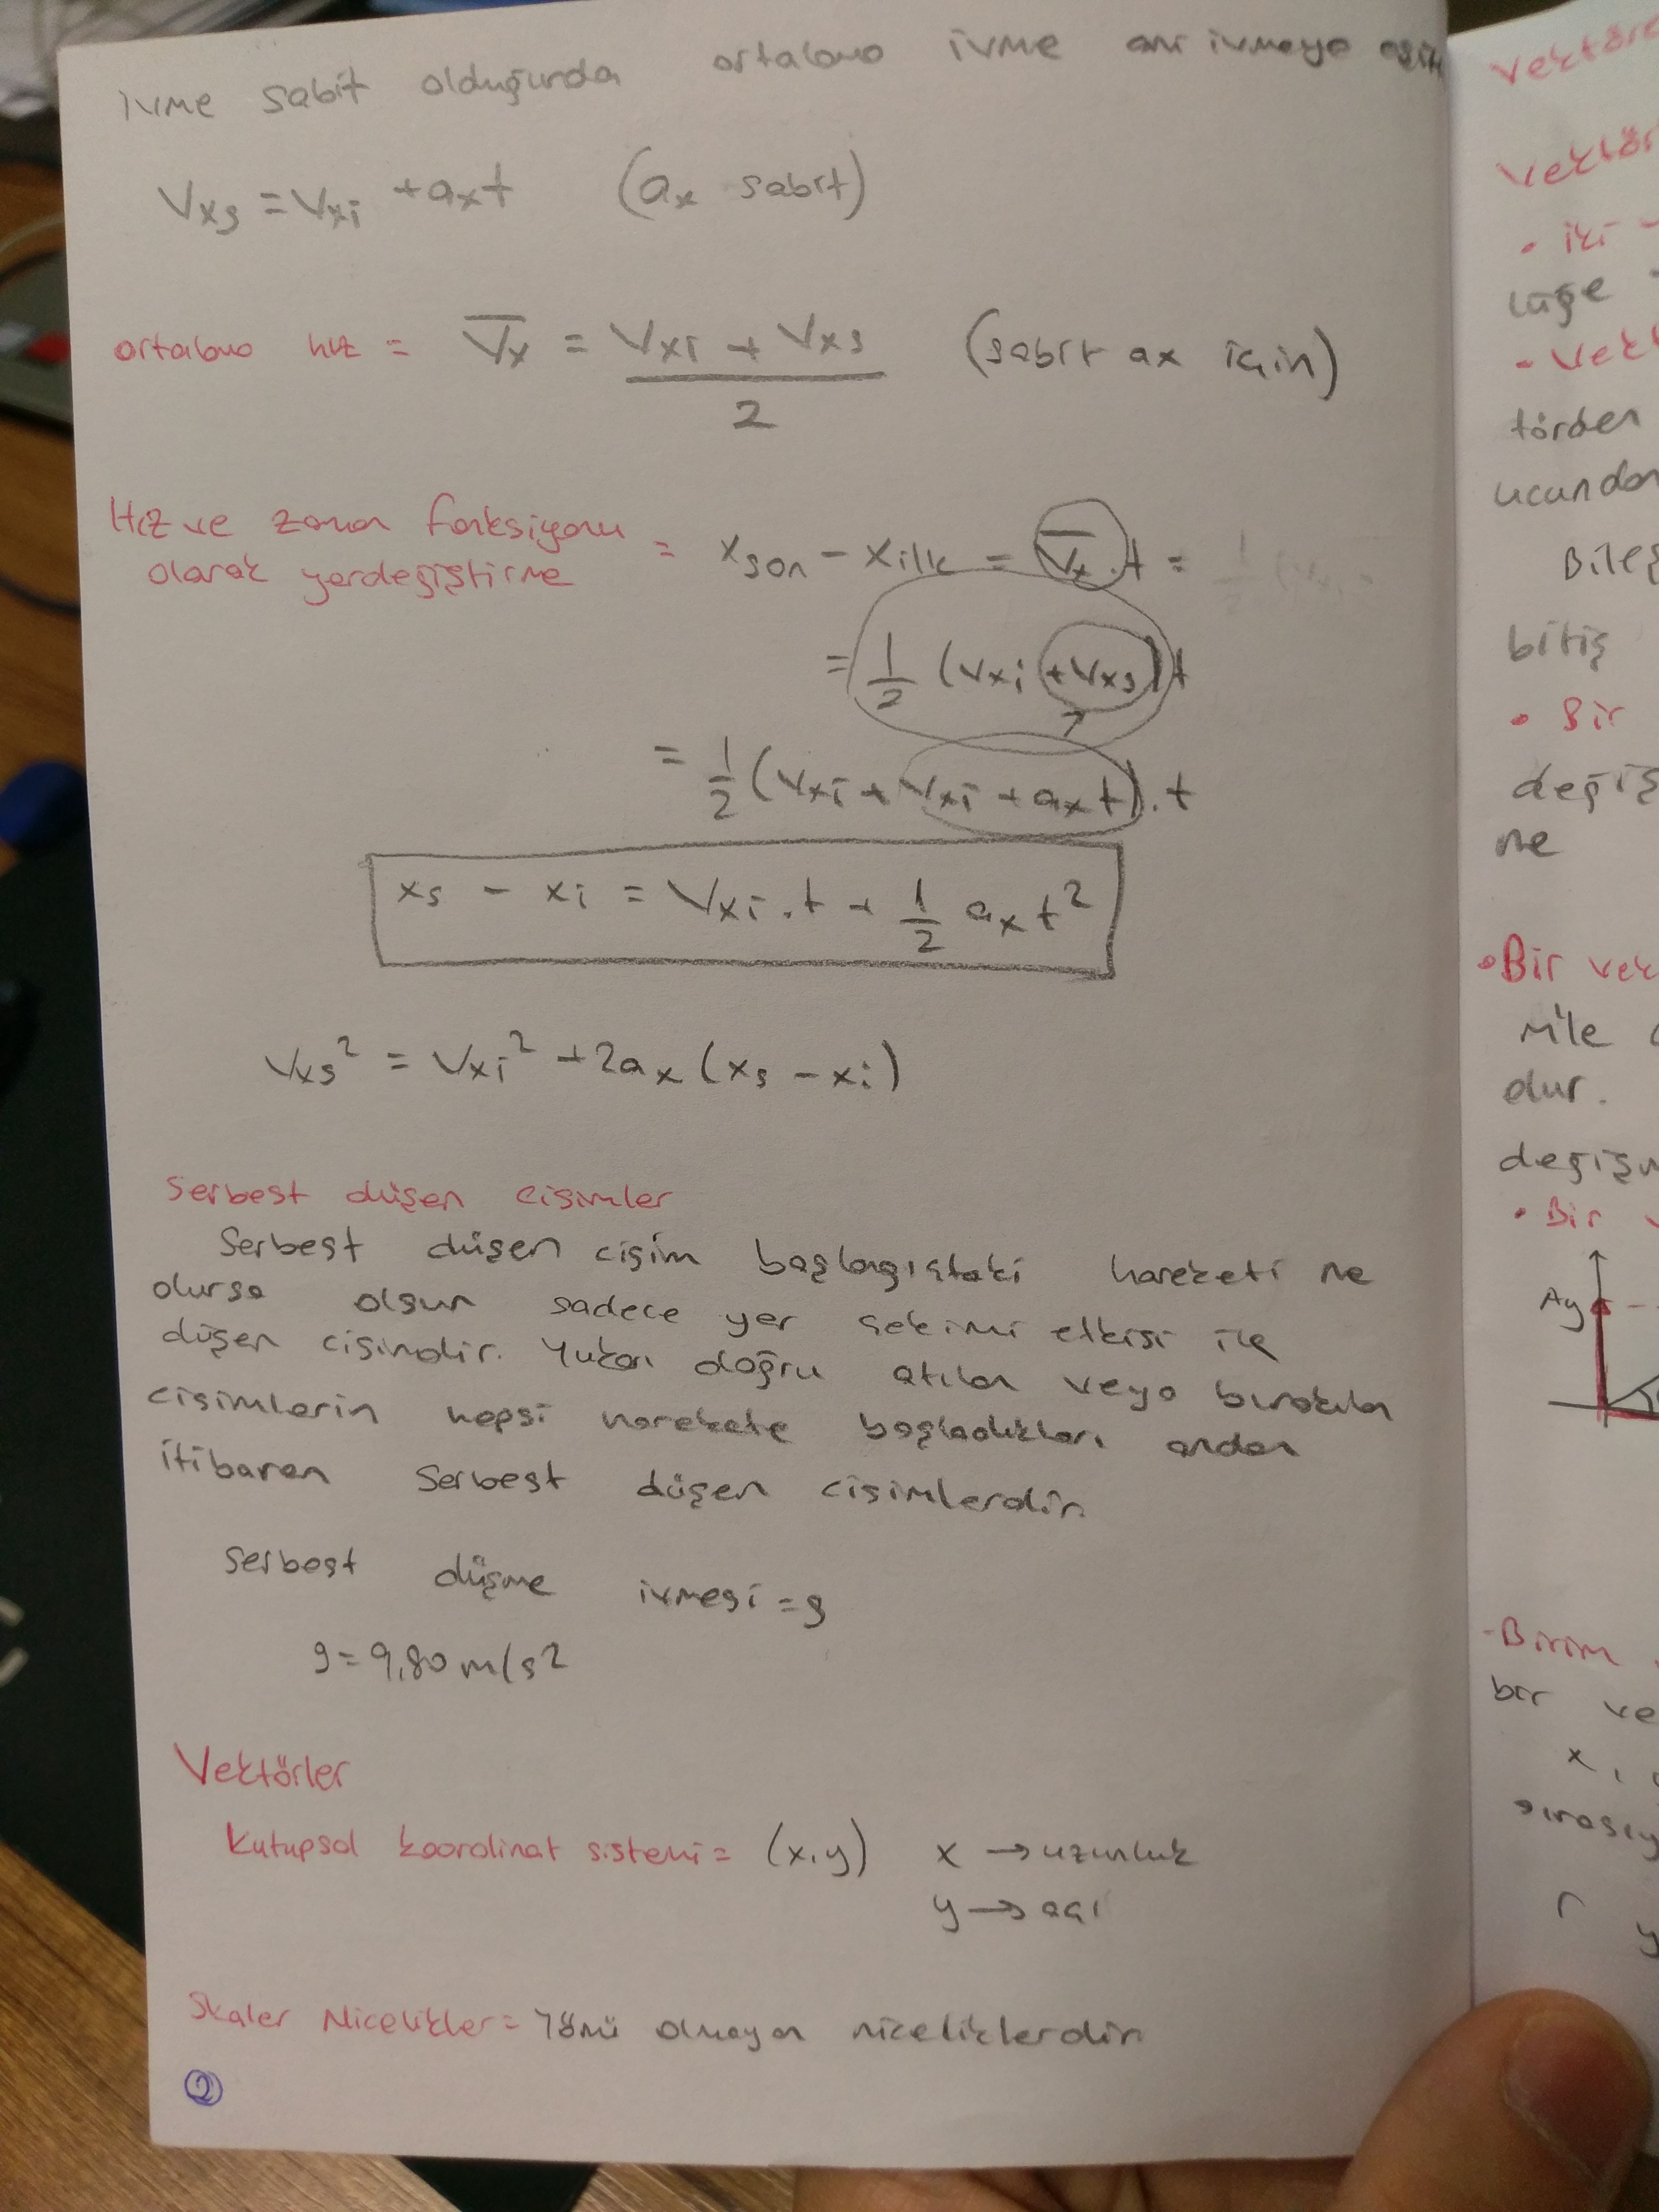 ivme sabit olduğunda ortalama ivme ani ivmeye eşit
Vxs = Vxi + axt (ax sabit)
ortalama hız = V̅x = (Vxi + Vxs) / 2 (sabit ax için)
Hız ve zaman fonksiyonu = xson - xilk = V̅x . t =
olarak yerdeğiştirme
= 1/2 (Vxi + Vxs)t
= 1/2 (Vxi + Vxi + axt) . t
xs - xi = Vxi . t + 1/2 axt²
Vxs² = Vxi² + 2ax (xs - xi)
Serbest düşen cisimler
Serbest düşen cisim başlangıçtaki hareketi ne
olursa olsun sadece yer çekimi etkisi ile
düşen cisimdir. Yukarı doğru atılan veya bırakılan
cisimlerin hepsi harekete başladıkları andan
itibaren serbest düşen cisimlerdir.
Serbest düşme ivmesi = g
g = 9,80 m/s²
Vektörler
Kutupsal koordinat sistemi = (x,y) x → uzunluk
y → açı
Skaler Nicelikler = Yönü olmayan niceliklerdir.
2
Vektör
• iki
lüğe
törden
ucundan
bitiş
• Bir
ne
• Bir vek
mile
dur.
• Bir
Ay
- Birim
bir ve
x,
r y